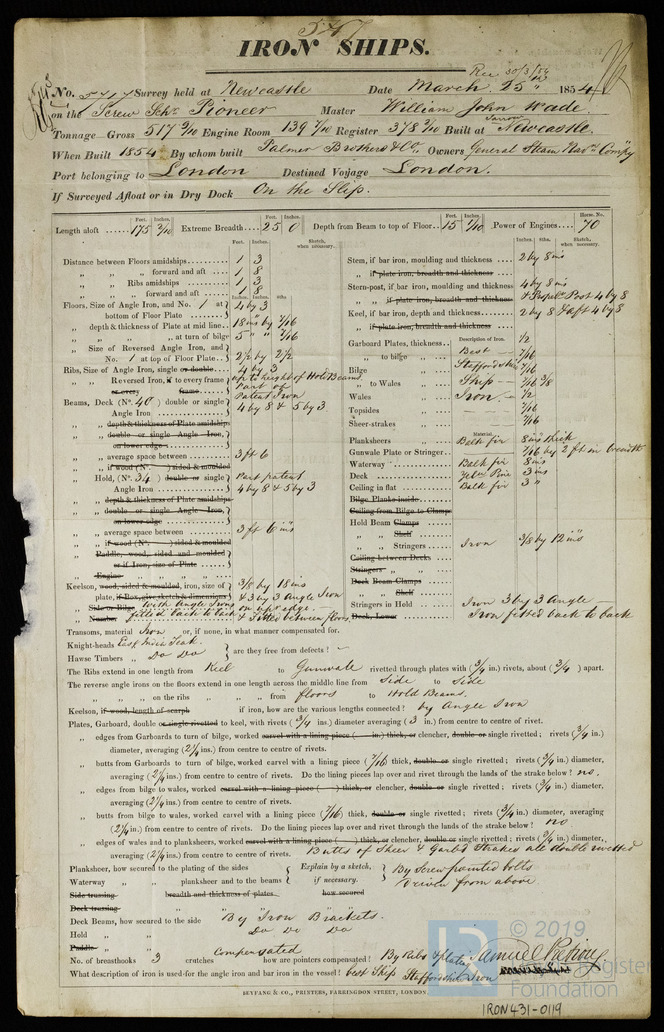 547
IRON SHIPS.
Rec 30/3/54
No. 5417 Survey held at Newcastle Date March 25" 1854
on the Screw Schr Pioneer Master William John Wade
Tonnage Gross 517 9/10 Engine Room 139 7/10 Register 378 2/10 Built at Jarrow Newcastle.
When Built 1854 By whom built Palmer Brothers & Co., Owners General Steam Navn Compy
Port belonging to London Destined Voyage London.
If Surveyed Afloat or in Dry Dock On the Slip.
Length aloft 175 2/10 Extreme Breadth 25 0 Depth from Beam to top of Floor 15 1/10 Power of Engines 70
Distance between Floors amidships 1 3
" " forward and aft 1 8
" Ribs amidships 1 3
" " forward and aft 1 8
Floors, Size of Angle Iron, and No. 1 at bottom of Floor Plate 4 by 3
" depth & thickness of Plate at mid line 18 ins by 7/16
" " " at turn of bilge 5 " " 7/16
" Size of Reversed Angle Iron, and No. 1 at top of Floor Plate 2 1/2 by 2 1/2
Ribs, Size of Angle Iron, single or double 4 by 3
" " Reversed Iron, to every frame or every frame up to height of Hold Beams
Beams, Deck (No. 40) double or single Angle Iron Part of Patent Iron 4 by 8 & 5 by 3
" depth & thickness of Plate amidships
" double or single Angle Iron, on lower edge
" average space between 3 ft 6
" if wood (No. ) sided & moulded
" Hold, (No. 34) double or single Angle Iron Part patent 4 by 8 & 5 by 3
" depth & thickness of Plate amidships
" double or single Angle Iron, on lower edge
" average space between 3 ft 6 ins
" if wood (No. ) sided & moulded
" Paddle, wood, sided and moulded or if Iron, size of Plate
" Engine
Keelson, wood, sided & moulded, iron, size of plate, if Box, give sketch & dimensions 3/8 by 18 ins & 3 by 3 Angle Iron
" Side or Bilge with Angle Irons on up edge.
" Number fitted back to back & fitted between floors
Stem, if bar iron, moulding and thickness 2 by 8 ins
" if plate iron, breadth and thickness
Stern-post, if bar iron, moulding and thickness 4 by 8 ins
" " if plate iron, breadth and thickness & Propelr Post 4 by 8
Keel, if bar iron, depth and thickness 2 by 8 & aft 4 by 8
" if plate iron, breadth and thickness
Description of Iron.
Garboard Plates, thickness 1/2
" to bilge " Best 7/16
Bilge Staffordshire 7/16
" to Wales " Ship 7/16 3/8
Wales " Iron 1/2
Topsides " 7/16
Sheer-strakes " 7/16
Material.
Planksheers " Balk fir 8 ins thick
Gunwale Plate or Stringer 7/16 by 2 ft in breadth
Waterway " Balk fir 8 ins
Deck " Yelw Pine 3 ins
Ceiling in flat " Balk fir 3 "
Bilge Planks inside
Ceiling from Bilge to Clamps
Hold Beam Clamps
" " Shelf
" " Stringers Iron 3/8 by 12 ins
Ceiling between Decks
Stringers "
Deck Beam Clamps
" " Shelf
Stringers in Hold Iron 3 by 3 Angle
Deck, Lower Iron fitted back to back
Transoms, material Iron or, if none, in what manner compensated for.
Knight-heads East India Teak.
Hawse Timbers " Do Do are they free from defects?
The Ribs extend in one length from Keel to Gunwale rivetted through plates with (3/4 in.) rivets, about (3/4) apart.
The reverse angle irons on the floors extend in one length across the middle line from Side to Side
" " on the ribs " " from floors to Hold Beams.
Keelson, if wood, length of scarph if iron, how are the various lengths connected? by Angle Iron
Plates, Garboard, double or single rivetted to keel, with rivets (3/4 ins.) diameter averaging (3 in.) from centre to centre of rivet.
" edges from Garboards to turn of bilge, worked carvel with a lining piece ( in.) thick, or clencher, double or single rivetted; rivets (3/4 in.) diameter, averaging (2 1/4 ins.) from centre to centre of rivets.
" butts from Garboards to turn of bilge, worked carvel with a lining piece (7/16) thick, double or single rivetted; rivets (3/4 in.) diameter, averaging (2 1/4 ins.) from centre to centre of rivets. Do the lining pieces lap over and rivet through the lands of the strake below? no.
" edges from bilge to wales, worked carvel with a lining piece ( ) thick, or clencher, double or single rivetted; rivets (3/4 in.) diameter, averaging (2 1/4 ins.) from centre to centre of rivets.
" butts from bilge to wales, worked carvel with a lining piece (7/16) thick, double or single rivetted; rivets (3/4 in.) diameter, averaging (2 1/4 in.) from centre to centre of rivets. Do the lining pieces lap over and rivet through the lands of the strake below? no
" edges of wales and to planksheers, worked carvel with a lining piece ( ) thick, or clencher, double or single rivetted; rivets (3/4 in.) diameter, averaging (2 1/4 ins.) from centre to centre of rivets. Butts of Sheer & Garbd Strakes are double rivetted
Planksheer, how secured to the plating of the sides Explain by a sketch, By Screw pointed bolts
Waterway " " planksheer and to the beams if necessary. driven from above.
Side trussing breadth and thickness of plates how secured
Deck trussing
Deck Beams, how secured to the side By Iron Brackets.
Hold " " Do Do Do
Paddle "
No. of breasthooks 3 crutches Compensated how are pointers compensated? By Ribs & plating
What description of iron is used for the angle iron and bar iron in the vessel? best Ship Staffordshire Iron
SEYFANG & CO., PRINTERS, FARRINGDON STREET, LONDON
© 2019
Register
Foundation
IRON431-0119